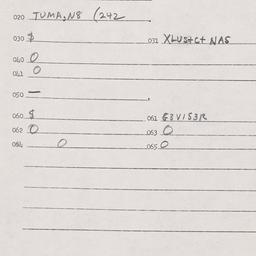 020 TUMA,N8 (242
030 $ 031 XLUS+C+ NAS
040 0
041 0
050 —
060 $ 061 G3V1S3R
062 0 063 0
064 0 065 0